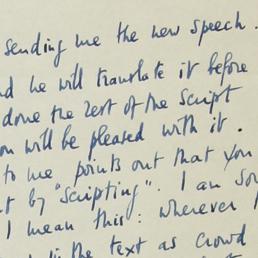 sending me the new speech.
nd he will translate it before
done the rest of the script
ou will be pleased with it.
to me points out that you
t by "scripting". I am so
I mean this: wherever
the text as crowd